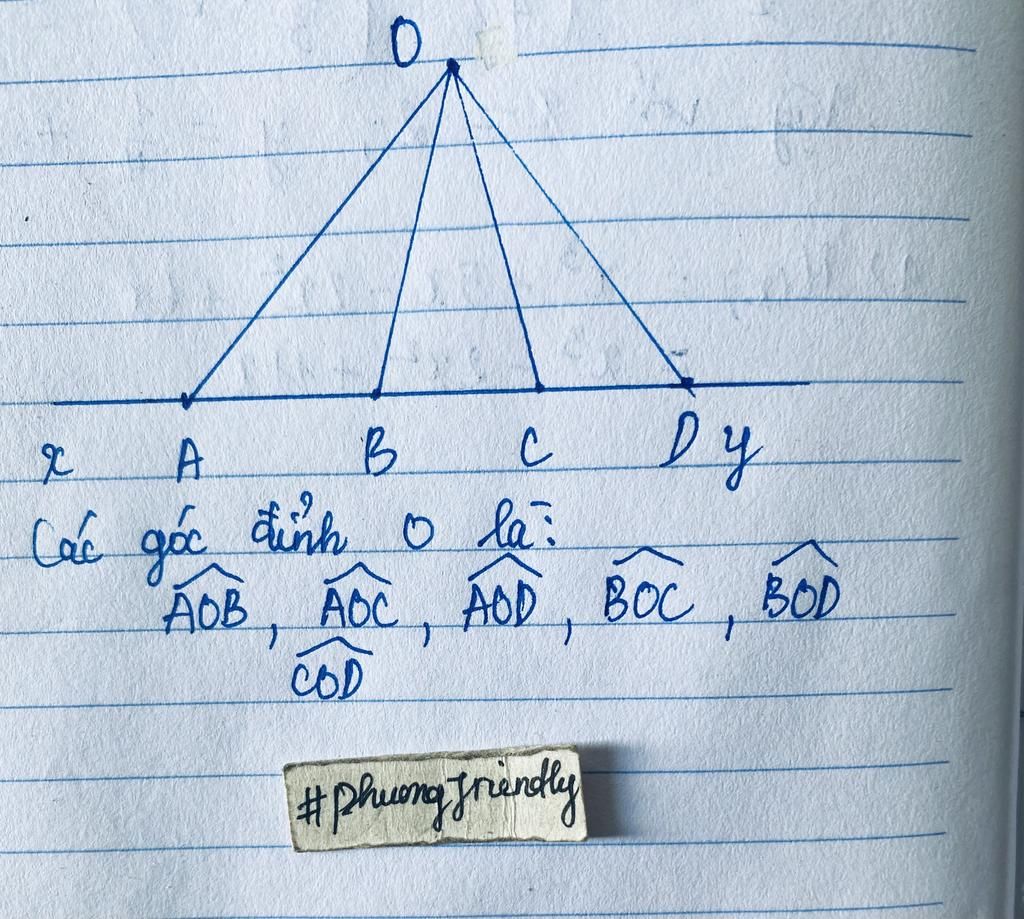 O
x A B C D y
Các góc đỉnh O là:
AOB, AOC, AOD, BOC, BOD
COD
#phuongfriendly